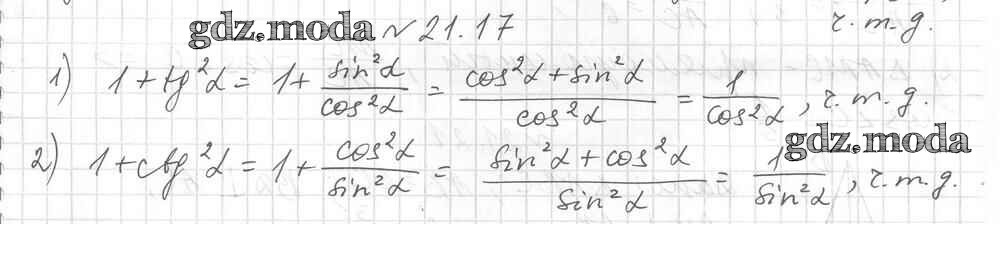 ч.т.д.
gdz.moda № 21.17
1) 1 + tg²α = 1 + sin²α/cos²α = (cos²α + sin²α)/cos²α = 1/cos²α, ч.т.д.
gdz.moda
2) 1 + ctg²α = 1 + cos²α/sin²α = (sin²α + cos²α)/sin²α = 1/sin²α, ч.т.д.